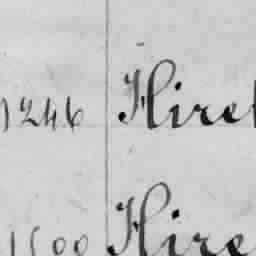 1246 Hiret
1500 Hire